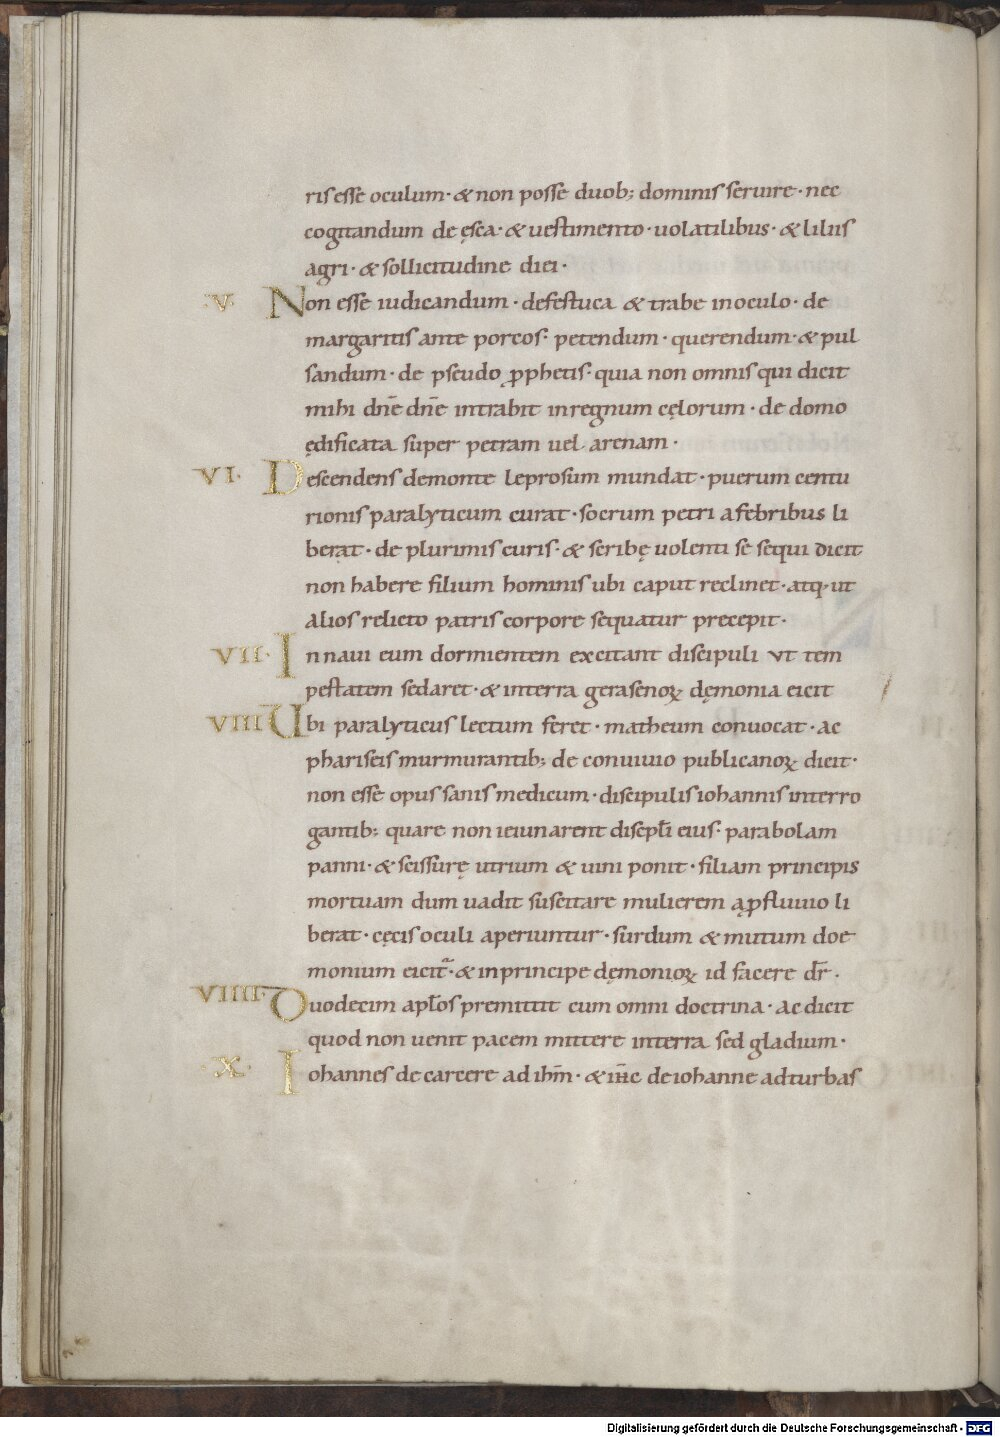 ris esse oculum · & non posse duob; dominis seruire · nec
cogitandum de ęsca · & uestimento · uolatilibus · & liliis
agri · & sollicitudine diei ·
·V· Non esse iudicandum · de festuca & trabe in oculo · de
margaritis ante porcos · petendum · querendum · & pul
sandum · de pseudo ꝓphetis · quia non omnis qui dicit
mihi dn̄e dn̄e intrabit in regnum cęlorum · de domo
ędificata super petram uel arenam ·
VI · Descendens de monte leprosum mundat · puerum centu
rionis paralyticum curat · socrum petri a febribus li
berat · de plurimis curis · & scribę uolenti se sequi dicit
non habere filium hominis ubi caput reclinet · atq · ut
alios relicto patris corpore sequatur precepit ·
VII · In naui eum dormientem excitant discipuli ut tem
pestatem sedaret · & in terra gerasenoꝝ dęmonia eicit
VIII Ubi paralyticus lectum feret · matheum conuocat · ac
phariseis murmurantib; de conuiuio publicanoꝝ dicit ·
non esse opus sanis medicum · discipulis iohannis interro
gantib; quare non ieiunarent discipl̄i eius · parabolam
panni · & scissurę utrium & uini ponit · filiam principis
mortuam dum uadit suscitare mulierem a ꝓfluuio li
berat · cęcis oculi aperiuntur · surdum & mutum doe
monium eicit · & in principe dęmonioꝝ id facere dr̄ ·
VIIII · Duodecim apl̄os premittit cum omni doctrina · ac dicit
quod non uenit pacem mittere in terra sed gladium ·
· X · Iohannes de carcere ad ih̄m · & ih̄c de iohanne ad turbas
Digitalisierung gefördert durch die Deutsche Forschungsgemeinschaft - DFG